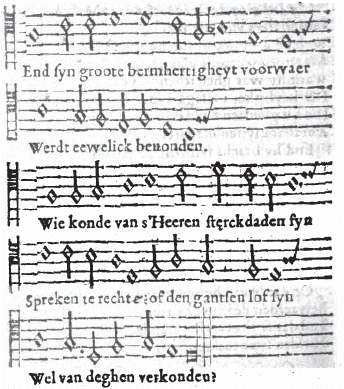 End syn groote bermhertigheyt voorwaer
Werdt eewelick beuonden.
Wie konde van s'Heeren sterckdaden syn
Spreken te rechte: of den gantsen lof syn
Wel van deghen verkonden?